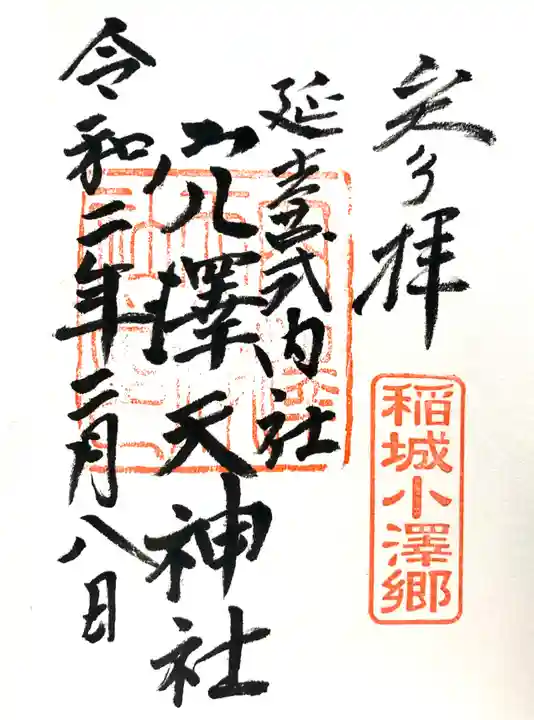 奉拝
稲城小澤郷
延喜式内社
穴澤天神社
令和二年二月八日